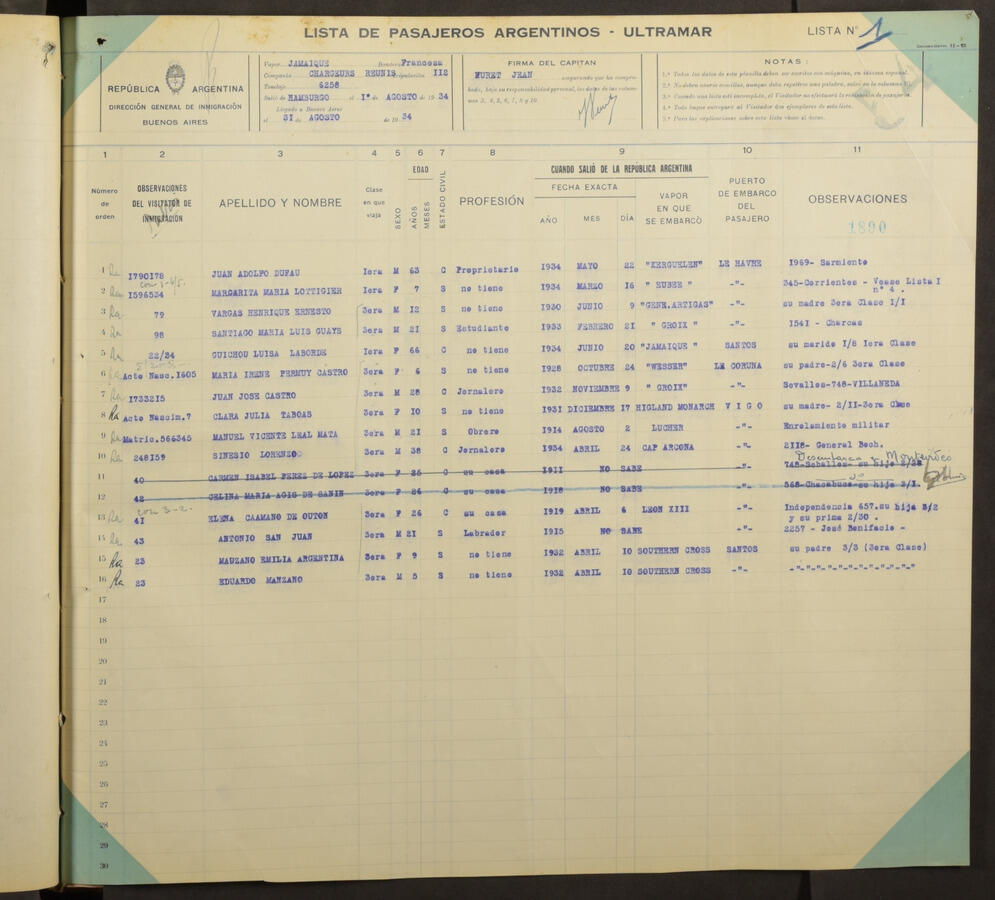 LISTA DE PASAJEROS ARGENTINOS - ULTRAMAR
LISTA N° 1
REPÚBLICA ARGENTINA
DIRECCIÓN GENERAL DE INMIGRACIÓN
BUENOS AIRES
Vapor JAMAIQUE Bandera Francesa
Compañía CHARGEURS REUNIS Tripulación 112
Tonelaje 6258
Salió de HAMBURGO el 1° de AGOSTO de 19 34
Llegado a Buenos Aires
el 31 AGOSTO de 19 34
FIRMA DEL CAPITAN
MURET JEAN asegurando que ha compro-
bado, bajo su responsabilidad personal, los datos de las colum-
nas 3, 4, 5, 6, 7, 8 y 10.
NOTAS:
1.ª Todos los datos de esta planilla deben ser escritos con máquina, en idioma español.
2.ª No deben usarse comillas, aunque deba repetirse una palabra, salvo en la columna
3.ª Cuando una lista esté incompleta, el Visitador no efectuará la revisación de pasajeros.
4.ª Todo buque entregará al Visitador dos ejemplares de esta lista.
5.ª Para las explicaciones sobre esta lista véase al dorso.
1 2 3 4 5 6 7 8 9 10 11
Número de orden
OBSERVACIONES DEL VISITADOR DE INMIGRACIÓN
APELLIDO Y NOMBRE
Clase en que viaja
SEXO
EDAD
AÑOS
MESES
ESTADO CIVIL
PROFESIÓN
CUANDO SALIÓ DE LA REPÚBLICA ARGENTINA
FECHA EXACTA
AÑO MES DÍA
VAPOR EN QUE SE EMBARCÓ
PUERTO DE EMBARCO DEL PASAJERO
OBSERVACIONES
1890
1 Ra 1790178 JUAN ADOLFO DUFAU 1era M 63 C Proprietario 1934 MAYO 22 "KERGUELEN" LE HAVRE 1969- Sarmiente
con 1-4/5.
2 Ra 1596534 MARGARITA MARIA LOTTIGIER 1era F 7 S no tiene 1934 MARZO 16 " EUBEE " -"- 345-Corrientes - Vease Lista 1 n° 4 .
3 Ra 79 VARGAS HENRIQUE ERNESTO 3era M 12 S no tiene 1930 JUNIO 9 "GENE.ARTIGAS" -"- su madre 3era Clase 1/1
4 Ra 98 SANTIAGO MARIA LUIS GUAYS 3era M 21 S Estudiante 1933 FEBRERO 21 " GROIX " -"- 1541 - Charcas
5 Ra 22/34 GUICHOU LUISA LABORDE 1era F 66 C no tiene 1934 JUNIO 20 "JAMAIQUE " SANTOS su marido 1/8 1era Clase
6 Ra Acto Nasc.1605 MARIA IRENE PERMUY CASTRO 3era F 6 S no tiene 1928 OCTUBRE 24 "WESSER" LE CORUNA su padre-2/6 3era Clase
7 Ra 1733215 JUAN JOSE CASTRO 3era M 28 C Jornalero 1932 NOVIEMBRE 9 " GROIX" -"- Sevalles-748-VILLANEDA
8 Ra Acto Nascim.7 CLARA JULIA TABOAS 3era F 10 S no tiene 1931 DICIEMBRE 17 HIGLAND MONARCH V I G O su madre- 2/11-3era Clase
9 Ra Matric.566345 MANUEL VICENTE LEAL MATA 3era M 21 S Obrero 1914 AGOSTO 2 LUCHER -"- Enrolamiento militar
10 Ra 248159 SINESIO LORENZO 3era M 38 C Jornalero 1934 ABRIL 24 CAP ARCONA -"- 2118- General Bech.
Desembarca en Montevideo
11 40 CARMEN ISABEL PEREZ DE LOPEZ 3era F 25 C su casa 1911 NO SABE -"- 748-Seballes- su hijo 2/38
12 42 CELINA MARIA AGIS DE SANIN 3era F 24 C su casa 1918 NO SABE -"- 568-Chacabuco-su hija 3/1.
con 3-2.
13 Ra 41 ELENA CAAMANO DE OUTON 3era F 26 C su casa 1919 ABRIL 6 LEON XIII -"- Independencia 657.su hija 3/2 y su prima 2/30 .
14 Ra 43 ANTONIO SAN JUAN 3era M 21 S Labrador 1915 NO SABE -"- 2257 - José Bonifacio -
15 Ra 23 MAUZANO EMILIA ARGENTINA 3era F 9 S no tiene 1932 ABRIL 10 SOUTHERN CROSS SANTOS su padre 3/3 (3era Clase)
16 Ra 23 EDUARDO MANZANO 3era M 5 S no tiene 1932 ABRIL 10 SOUTHERN CROSS -"- -"-"-"-"-"-"-"-"-"-"-
17
18
19
20
21
22
23
24
25
26
27
28
29
30